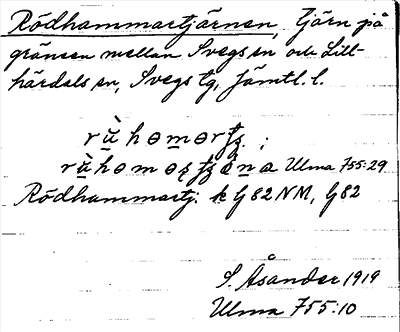 Rödhammartjärnen, tjärn på
gränsen mellan Svegs sn och Lill-
härdals sn, Svegs tg, Jämtl. l.
Ulma 755:29
Rödhammartj. k G82 NM, G82
S. Åsander 1919
Ulma 755:10